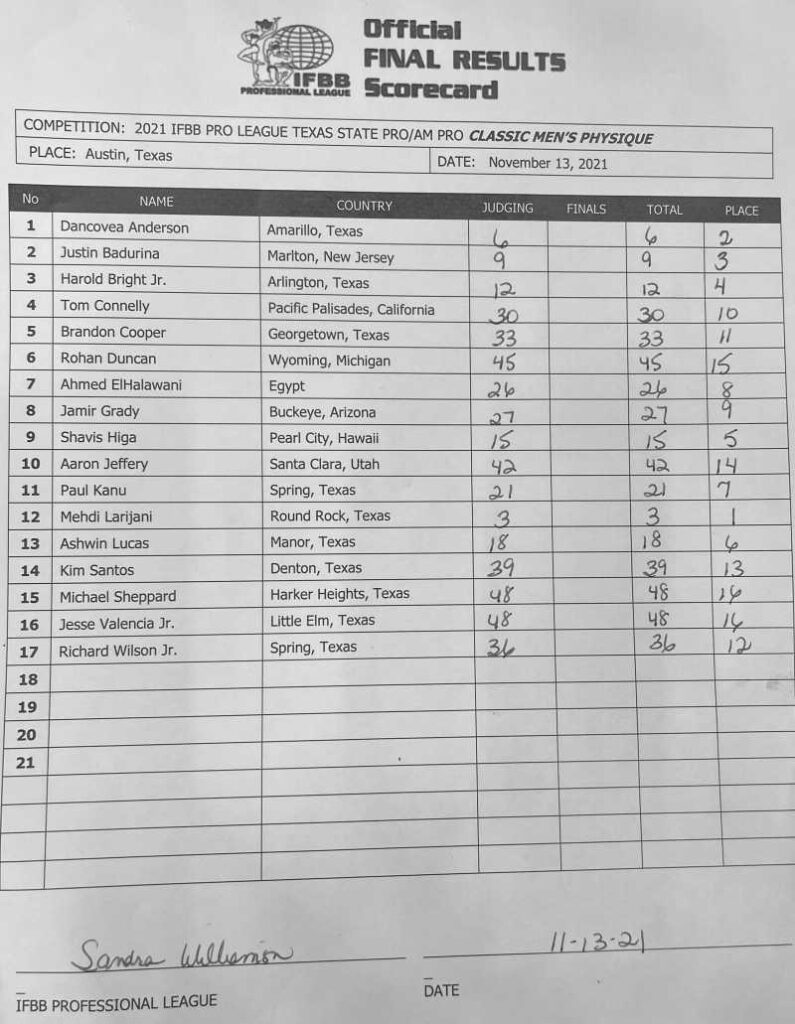 Official
FINAL RESULTS
Scorecard
IFBB
PROFESSIONAL LEAGUE
COMPETITION: 2021 IFBB PRO LEAGUE TEXAS STATE PRO/AM PRO CLASSIC MEN'S PHYSIQUE
PLACE: Austin, Texas DATE: November 13, 2021
No NAME COUNTRY JUDGING FINALS TOTAL PLACE
1 Dancovea Anderson Amarillo, Texas 6 6 2
2 Justin Badurina Marlton, New Jersey 9 9 3
3 Harold Bright Jr. Arlington, Texas 12 12 4
4 Tom Connelly Pacific Palisades, California 30 30 10
5 Brandon Cooper Georgetown, Texas 33 33 11
6 Rohan Duncan Wyoming, Michigan 45 45 15
7 Ahmed ElHalawani Egypt 26 26 8
8 Jamir Grady Buckeye, Arizona 27 27 9
9 Shavis Higa Pearl City, Hawaii 15 15 5
10 Aaron Jeffery Santa Clara, Utah 42 42 14
11 Paul Kanu Spring, Texas 21 21 7
12 Mehdi Larijani Round Rock, Texas 3 3 1
13 Ashwin Lucas Manor, Texas 18 18 6
14 Kim Santos Denton, Texas 39 39 13
15 Michael Sheppard Harker Heights, Texas 48 48 16
16 Jesse Valencia Jr. Little Elm, Texas 48 48 16
17 Richard Wilson Jr. Spring, Texas 36 36 12
18
19
20
21
Sandra Williamson 11-13-21
IFBB PROFESSIONAL LEAGUE DATE